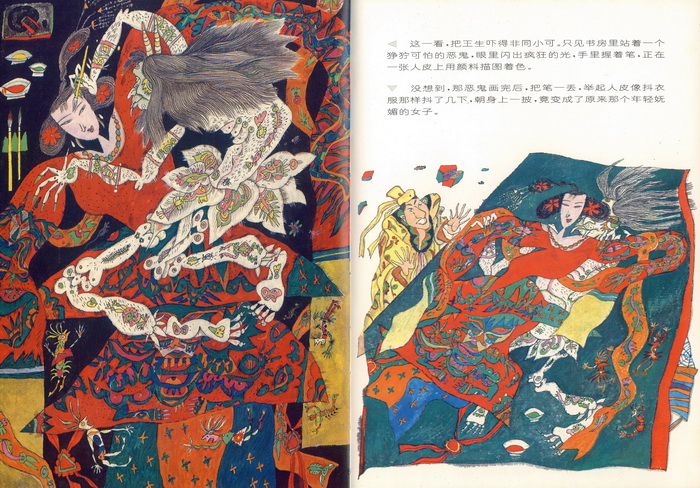 这一看，把王生吓得非同小可。只见书房里站着一个
狰狞可怕的恶鬼，眼里闪出疯狂的光，手里握着笔，正在
一张人皮上用颜料描图着色。
没想到，那恶鬼画完后，把笔一丢，举起人皮像抖衣
服那样抖了几下，朝身上一披，竟变成了原来那个年轻妩
媚的女子。